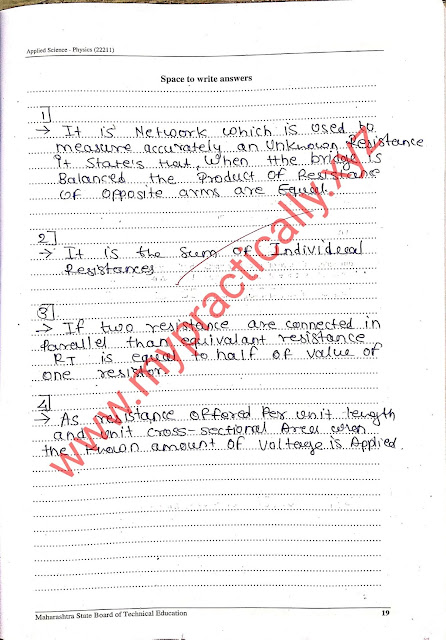 Applied Science - Physics (22211)
Space to write answers
1]
→ It is Network which is used to
measure accurately an Unknown Resistance
It State's that, When tthe bridge is
Balanced the Product of Resistance
of opposite arms are Equal.
2]
→ It is the Sum of Individeal
Resistances
3]
→ If two resistance are connected in
Parallel than equivalant resistance
RT is equal to half of value of
one resistor
4]
→ As resistance offered Per unit length
and unit cross-sectional Area when
the known amount of voltage is Applied
www.mypractically.xyz
Maharashtra State Board of Technical Education 19